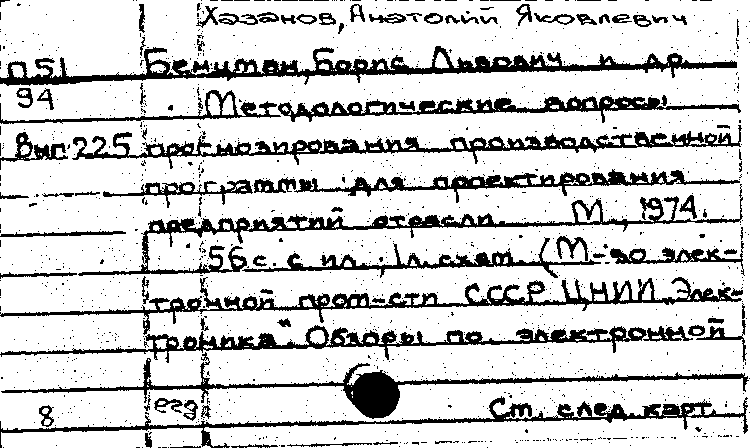 Хазанов, Анатолий Яковлевич
П51 Бенцман, Борис Львович и др.
94 Методологические вопросы
Вып 225 прогнозирования производственной
программы для проектирования
предприятий отрасли. М., 1974.
56 с. с ил.; 1 л. схем. (М-во элек-
тронной пром-сти СССР ЦНИИ „Элек-
троника“. Обзоры по электронной
8 Ст. след. карт.